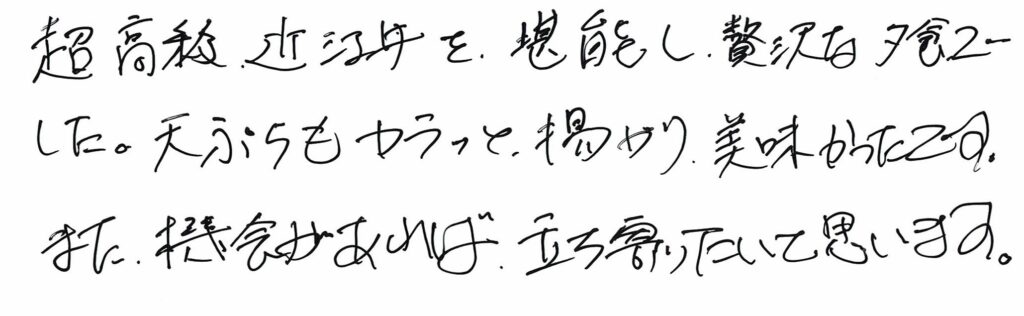 超高級近江牛を堪能し、贅沢な夕食で
した。天ぷらもカラッと揚がり、美味かったです。
また、機会があれば、立ち寄りたいと思います。